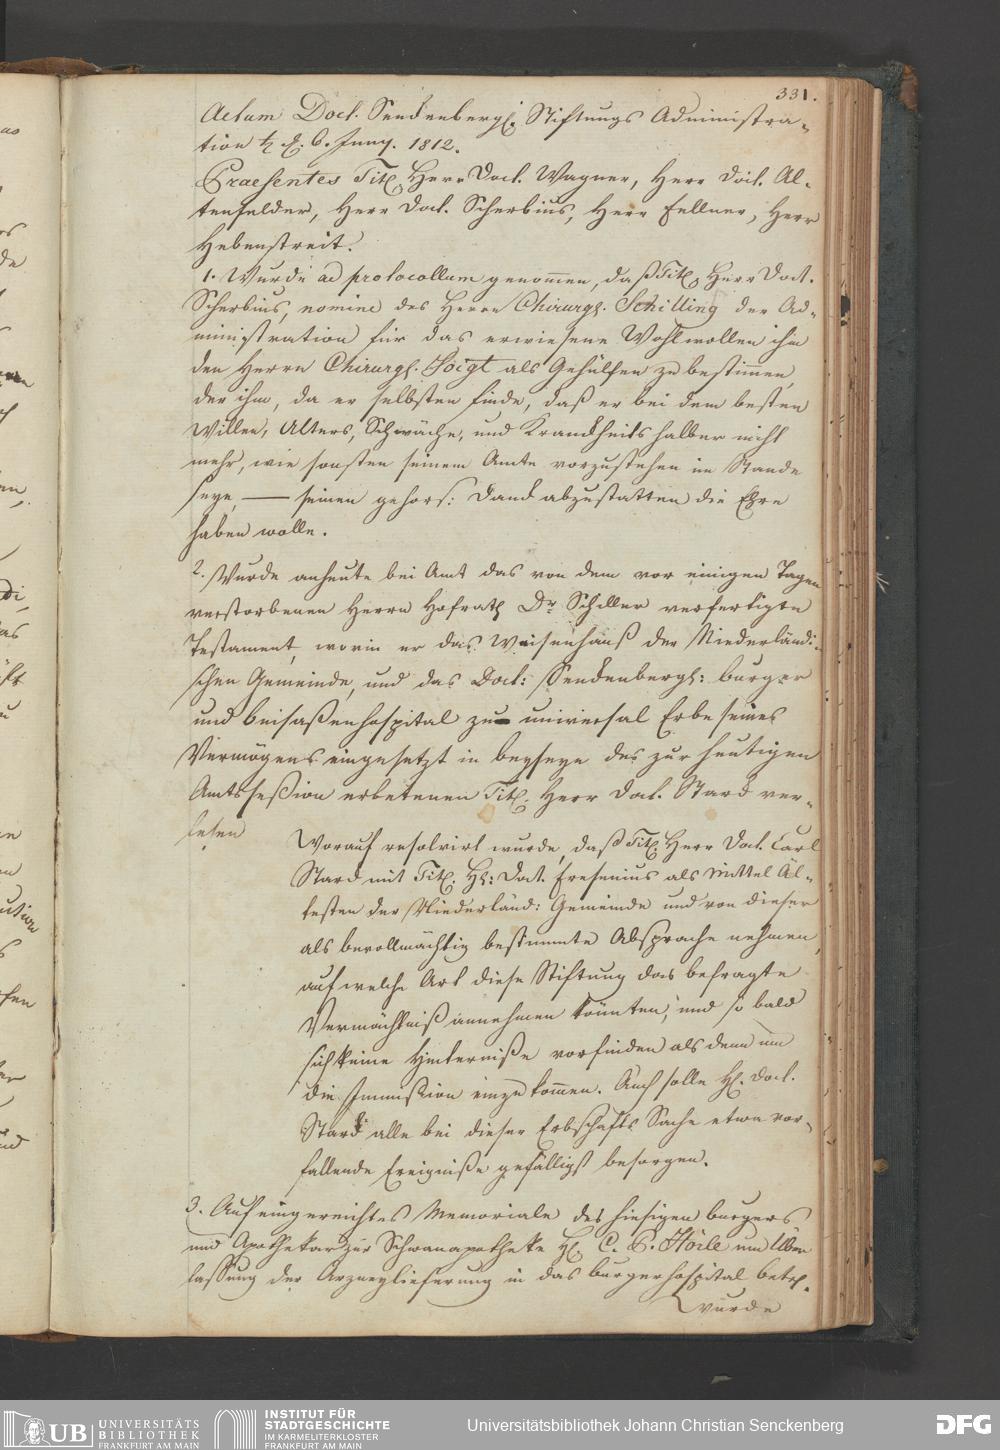 331.
Actum Doct. Senckenbergs: Stiftungs Administra-
tion d. 6. Juny. 1812.
Praesentes Tit. Herr Doct. Wagner, Herr Doct. Al-
tenfelder, Herr Doct. Scherbius, Herr Fellner, Herr
Hebenstreit.
1. Wurde ad protocollum genommen, daß Tit. Herr Doct.
Scherbius, nomine des Herrn Chirurgs. Schilling der Ad-
ministration für das erwiesene Wohlwollen ihm
den Herrn Chirurgs. Voigt als Gehülfen zu bestimmen,
der ihm, da er selbsten finde, daß er bei dem besten
Willen, Alters, Schwäche, und Kranckheits halber nicht
mehr, wie sonsten seinem Amte vorzustehen im Stande
seye, — seinen gehors: Danck abzustatten die Ehre
haben wolle.
2. Wurde anheute bei Amt das von dem vor einigen Tagen
verstorbenen Herrn Hofrath Dr. Schiller verfertigte
Testament, worin er das Waisenhauß der Niederländi-
schen Gemeinde, und das Doct: Senckenbergs: burger
und beisaßenhospital zu universal Erbe seines
Vermögens eingesetzt in beyseyn des zur heutigen
Amtsseßion erbetenen Tit. Herr Doct. Starck ver-
lesen
Worauf resolvirt wurde, daß Tit. Herr Doct. Carl
Starck mit Tit. H: Doct. Fresenius als Mittel Äl-
testen der Niederländ: Gemeinde und von dieser
als bevollmächtig bestimmte Absprache nehmen,
auf welche Art diese Stiftung das befragte
Vermächtniß annehmen könnten, und so bald
sich keine Hinterniße vorfinden als denn um
die Immission einzukommen. Auch solle H. Doct.
Starck alle bei dieser Erbschafts Sache etwa vor-
fallende Ereigniße gefälligst besorgen.
3. Auf eingereichtes Memoriale des hiesigen burgers
und Apothekar zur Schwanapotheke H. C. P. Hörle um Über
lassung der Arzneylieferung in das burgerhospital betr.
wurde
UB UNIVERSITÄTS
BIBLIOTHEK
FRANKFURT AM MAIN
INSTITUT FÜR
STADTGESCHICHTE
IM KARMELITERKLOSTER
FRANKFURT AM MAIN
Universitätsbibliothek Johann Christian Senckenberg
DFG